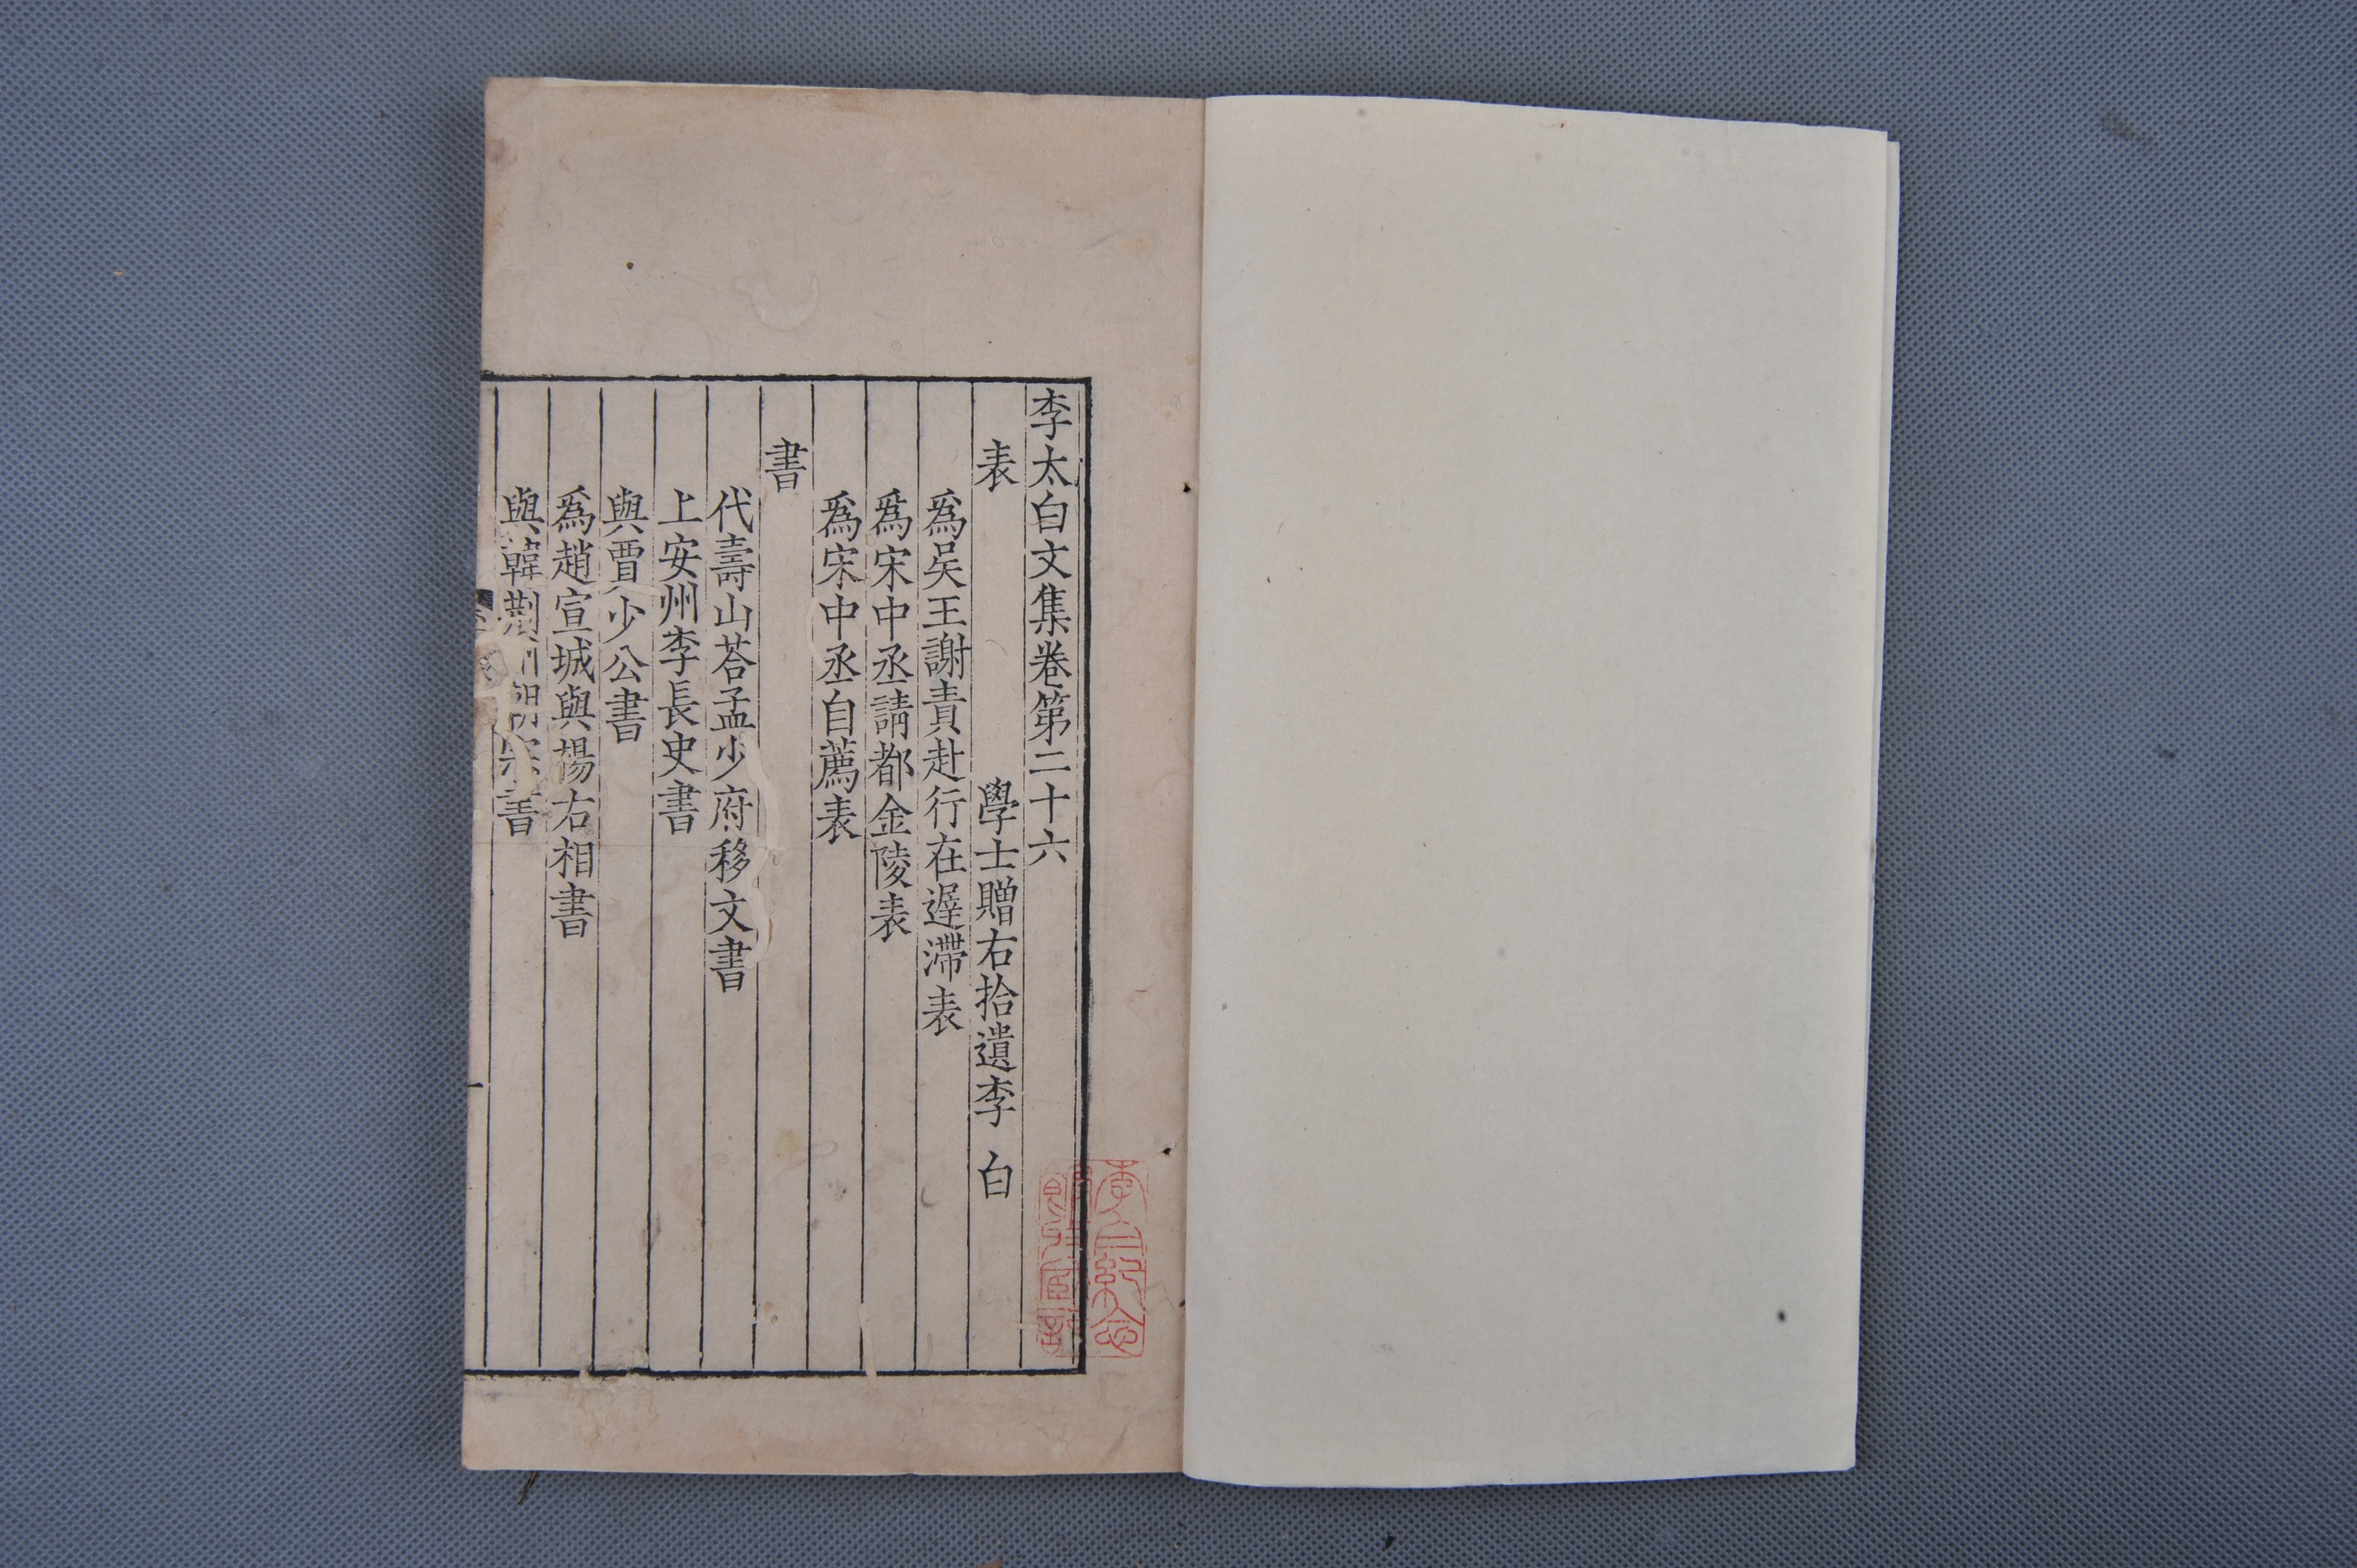 李太白文集卷第二十六
表 學士贈右拾遺李 白
爲吴王謝責赴行在遲滯表
爲宋中丞請都金陵表
爲宋中丞自薦表
書
代壽山荅孟少府移文書
上安州李長史書
與賈少公書
爲趙宣城與楊右相書
與韓荆州朝宗書
李白紀念